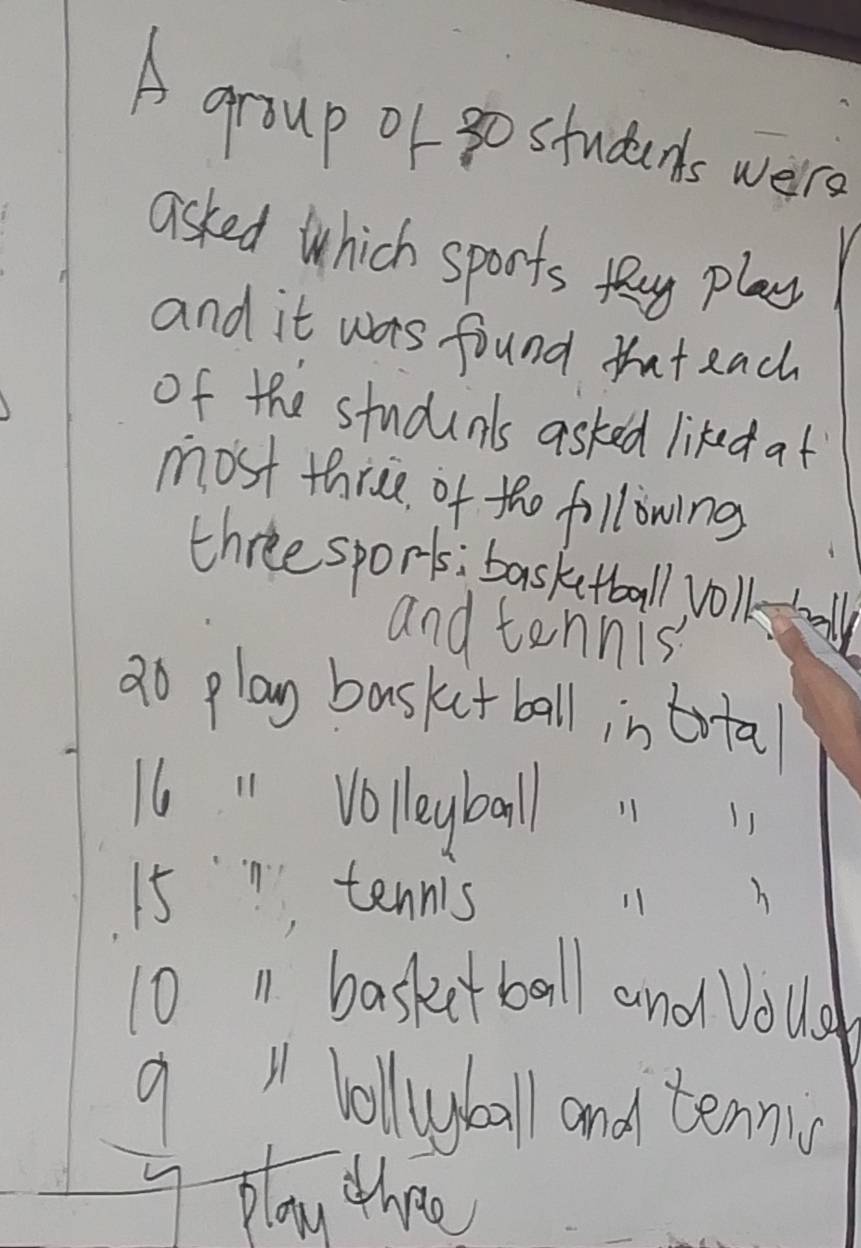 A group of 30 students were
asked which sports they play
and it was found that each
of the students asked liked at
most three of the following
three sports: basketball, Volleyball
and tennis
20 play basket ball in total
16 " Volleyball " "
15 " tennis " "
10 " basket ball and Volley
9 " Vollyball and tennis
play three